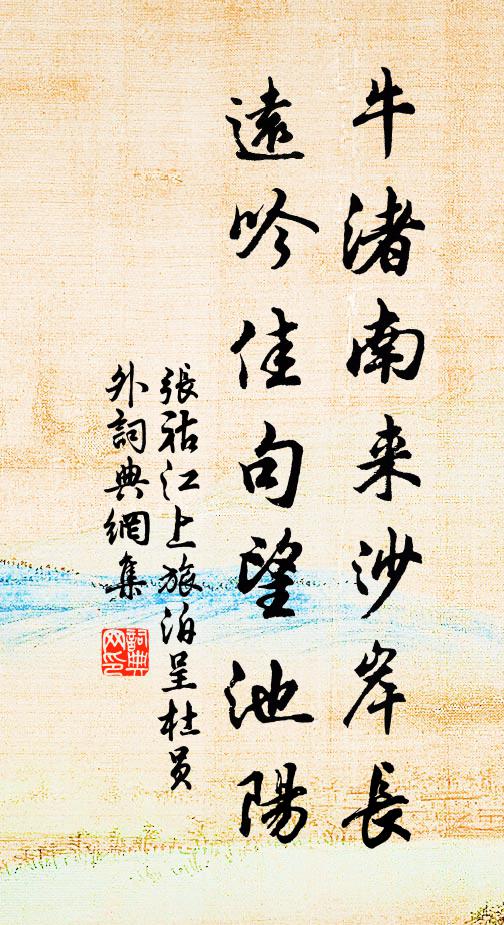 牛渚南来沙岸長
遠吟佳句望池陽
張祜江上旅泊呈杜員
外詞典網集
詞典
网印